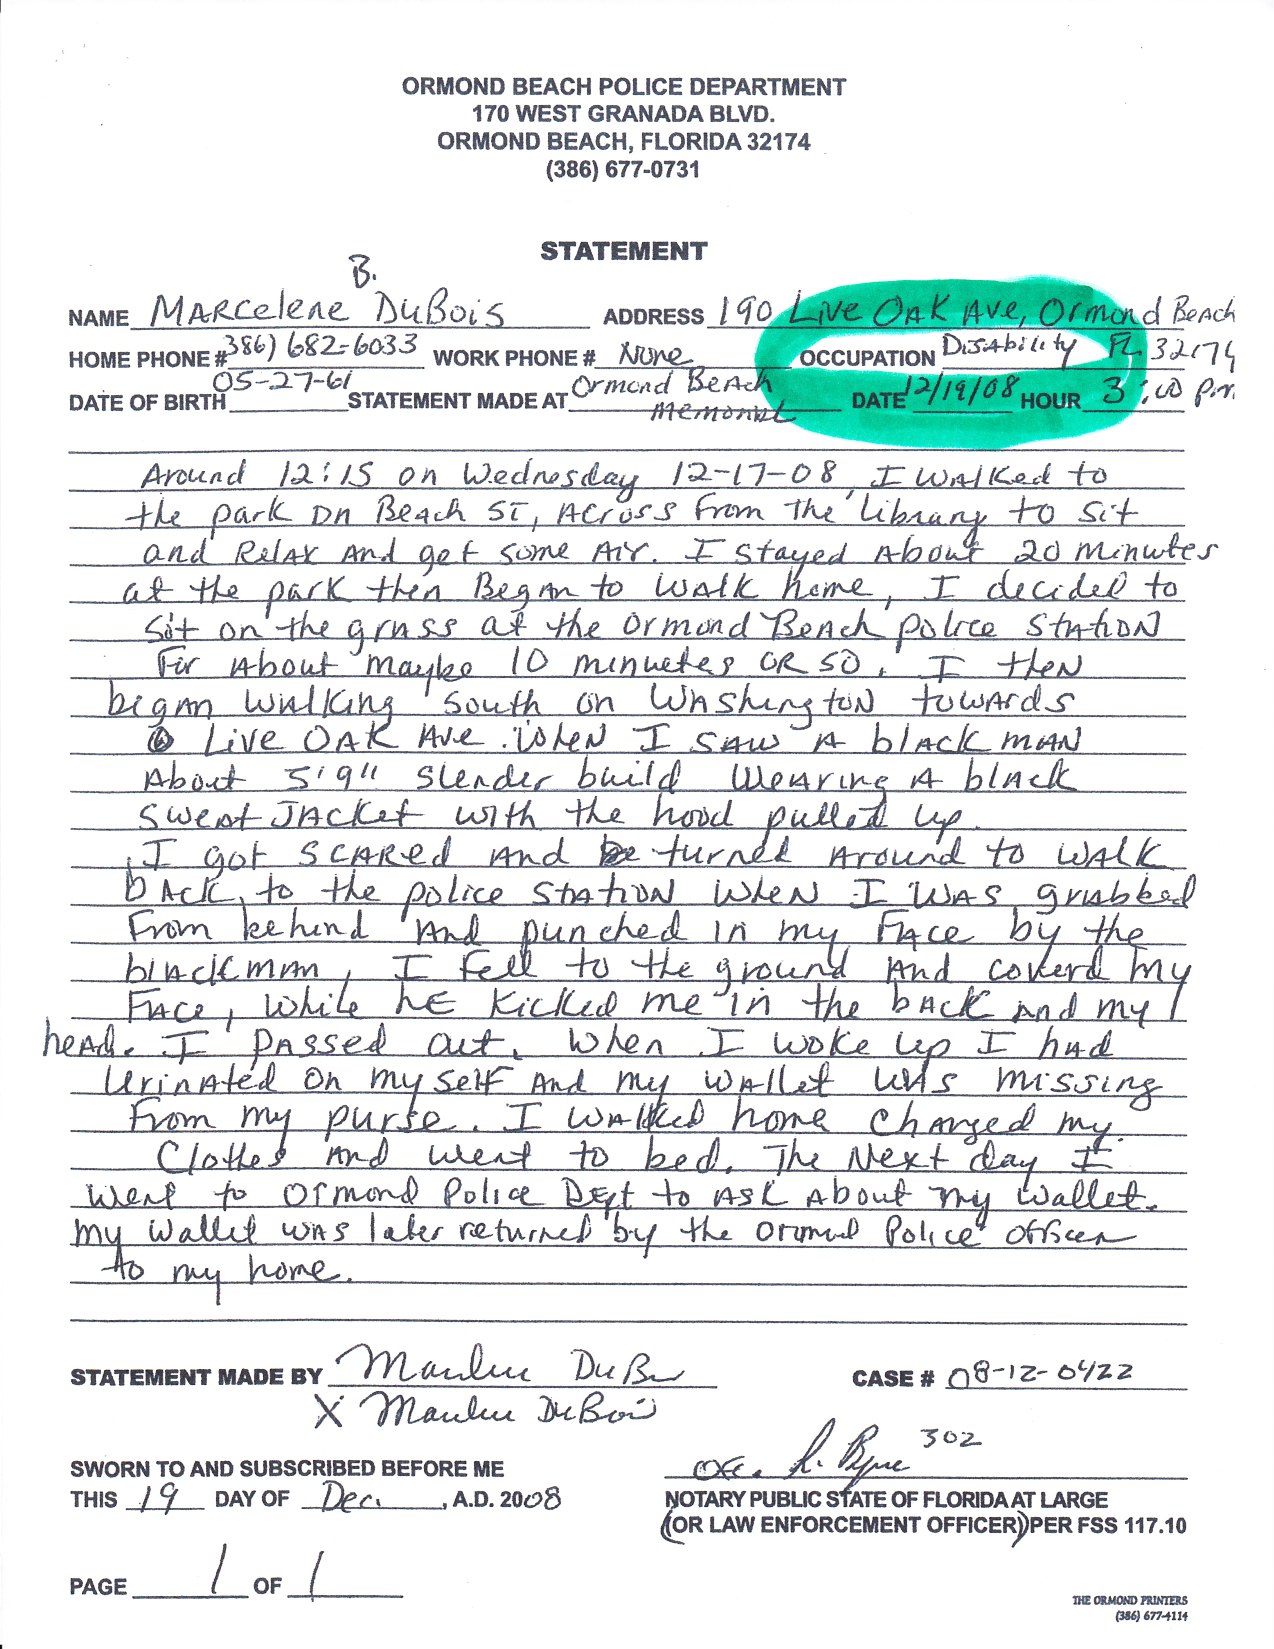 ORMOND BEACH POLICE DEPARTMENT
170 WEST GRANADA BLVD.
ORMOND BEACH, FLORIDA 32174
(386) 677-0731
STATEMENT
B.
NAME MARCelene DuBois ADDRESS 190 Live OAK Ave, Ormond Beach
HOME PHONE # 386) 682-6033 WORK PHONE # None OCCUPATION Disability FL 32174
DATE OF BIRTH 05-27-61 STATEMENT MADE AT Ormond Beach Memorial DATE 12/19/08 HOUR 3:00 p.m.
Around 12:15 on Wednesday 12-17-08, I walked to
the park on Beach ST, Across from the library to sit
and Relax and get some Air. I stayed About 20 minutes
at the park then Began to walk home, I decided to
sit on the grass at the Ormond Beach police station
For About maybe 10 minuetes or so. I then
began walking south on Washington towards
Live OAK Ave. when I saw A black man
About 5'9" slender build wearing A black
sweat JACKet with the hood pulled up.
I got scared and turned around to walk
back to the police station when I was grabbed
from behind and punched in my face by the
blackman, I fell to the ground and coverd my
face, while he kicked me in the back and my
head. I passed out. When I woke up I had
urinated on myself and my wallet was missing
from my purse. I walked home changed my
clothes and went to bed. The next day I
went to Ormond Police Dept to ask about my wallet.
my wallet was later returned by the Ormond Police officer
to my home.
STATEMENT MADE BY DuB CASE # 08-12-0422
X DuBois
302
SWORN TO AND SUBSCRIBED BEFORE ME Ofc. R. Byrne
THIS 19 DAY OF Dec. , A.D. 2008 NOTARY PUBLIC STATE OF FLORIDA AT LARGE
(OR LAW ENFORCEMENT OFFICER) PER FSS 117.10
PAGE 1 OF 1
THE ORMOND PRINTERS
(386) 677-4114